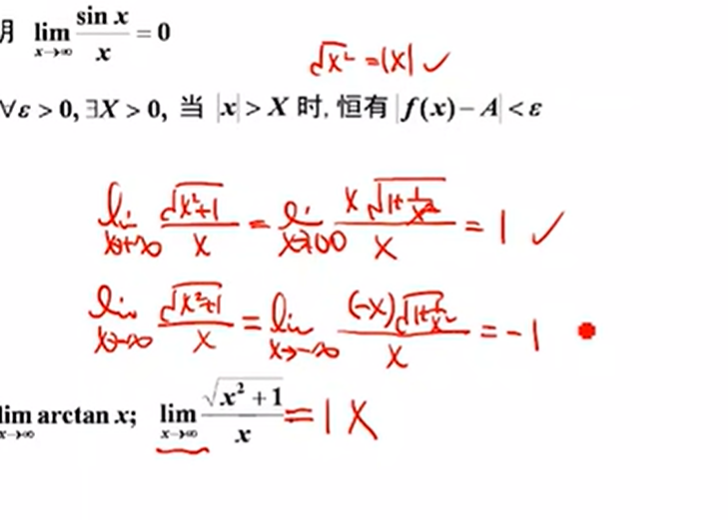 明 lim x→∞ sin x / x = 0
√x² = |x| ✓
∀ε > 0, ∃X > 0, 当 |x| > X 时, 恒有 |f(x) − A| < ε
lim x→+∞ √x²+1 / x = lim x→+∞ x√1+1/x² / x = 1 ✓
lim x→−∞ √x²+1 / x = lim x→−∞ (−x)√1+1/x² / x = −1
lim x→∞ arctan x; lim x→∞ √x²+1 / x = 1 ✗